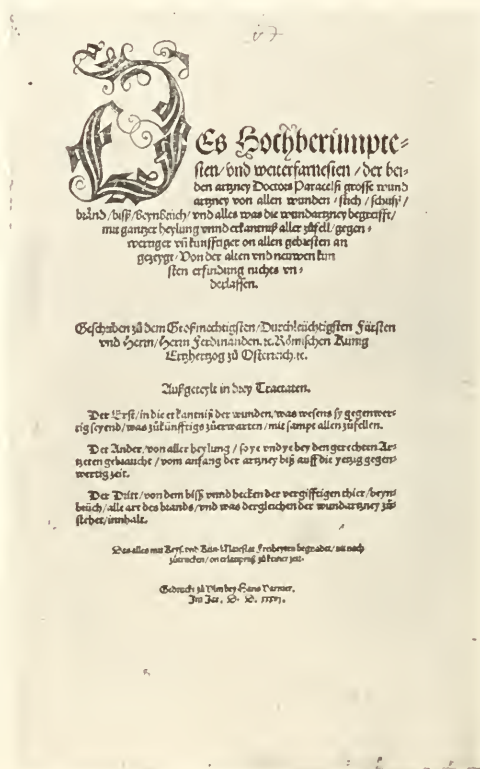 DEs Hochberümpte-
sten/vnd weiterfarnesten/der bei-
den artzney Doctors Paracelsi grosse wund
artzney von allen wunden/stich/schuss/
bränd/biss/beynbrüch/vnd alles was die wundartzney begreifft/
mit gantzer heylung vnnd erkantniß aller zůfell/gegen-
wertiger vñ kunfftiger on allen gebresten an
gezeygt. Von der alten vnd neuwen kun
sten erfindung nichts vn-
derlassen.
Geschriben zů dem Großmechtigsten/Durchleüchtigsten Fürsten
vnd Herrn/Herrn Ferdinanden. ꝛc. Römischen Kunig
Ertzhertzog zů Osterreich. ꝛc.
Auffgeteylt in drey Tractaten.
Der Erst/in die erkantniß der wunden/was wesens sy gegenwer-
tig seyend/was zůkünfftigs zůerwarten/mit sampt allen zůfellen.
Der Ander/von aller heylung/so ye vnd ye bey den gerechten Ar-
tzeten gebraucht/vom anfang der artzney biß auff die yetzig gegen-
wertig zeit.
Der Dritt/von dem biss vnnd hecken der vergifftigen thier/beyn-
brüch/alle art des brands/vnd was dergleichen der wundartzney zů-
stehet/innhalt.
Das alles mit Keys. vnd Kün. Maiestat Freyheyten begnadet/nit nach
zůtrucken/on erlaupnuß zů keiner zeit.
Getruckt zů Vlm bey Hans Varnier.
Im Jar. M. D. XXXVI.